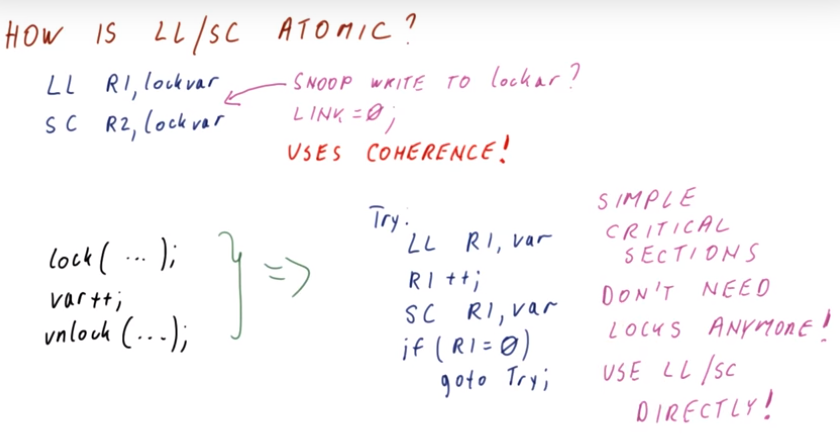 HOW IS LL/SC ATOMIC?
LL R1, lockvar
SC R2, lockvar
SNOOP WRITE TO lockar?
LINK = 0;
USES COHERENCE!
lock( ... );
var++;
unlock (...);
} =>
Try:
LL R1, var
R1 ++;
SC R1, var
if (R1 = 0)
goto Try;
SIMPLE
CRITICAL
SECTIONS
DON'T NEED
LOCKS ANYMORE!
USE LL/SC
DIRECTLY!